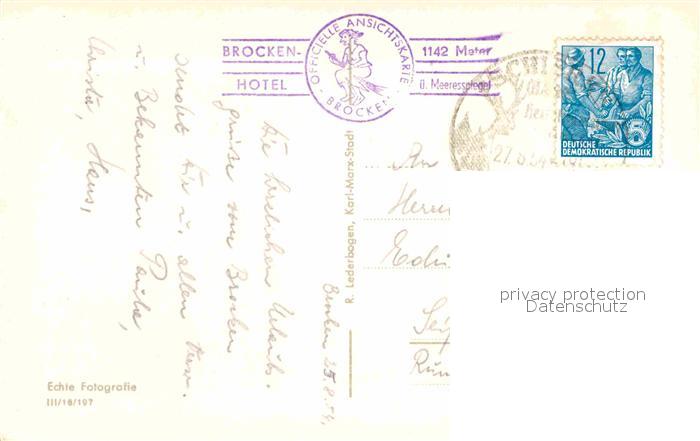 BROCKEN-
HOTEL
OFFICIELLE ANSICHTSKARTE
- BROCKEN -
1142 Meter
ü. Meeresspiegel
12
5
DEUTSCHE
DEMOKRATISCHE REPUBLIK
27.8.54
Brocken 25.8.54.
Die herzlichen Urlaubs-
grüße vom Brocken
sendet Dir u. allen Verw.
u. Bekannten
Christa, Hans,
R. Lederbogen, Karl-Marx-Stadt
An
Herrn
Echte Fotografie
III/18/197
privacy protection
Datenschutz